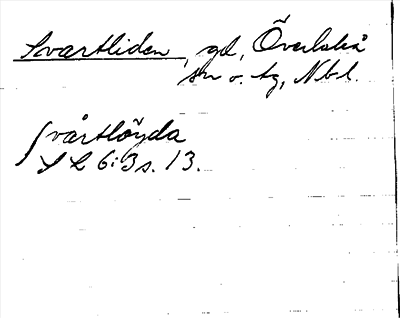 Svartliden, gd, Överluleå
sn o. tg, Nbl.
Svårtlöyda
S L 6:3 s. 13.